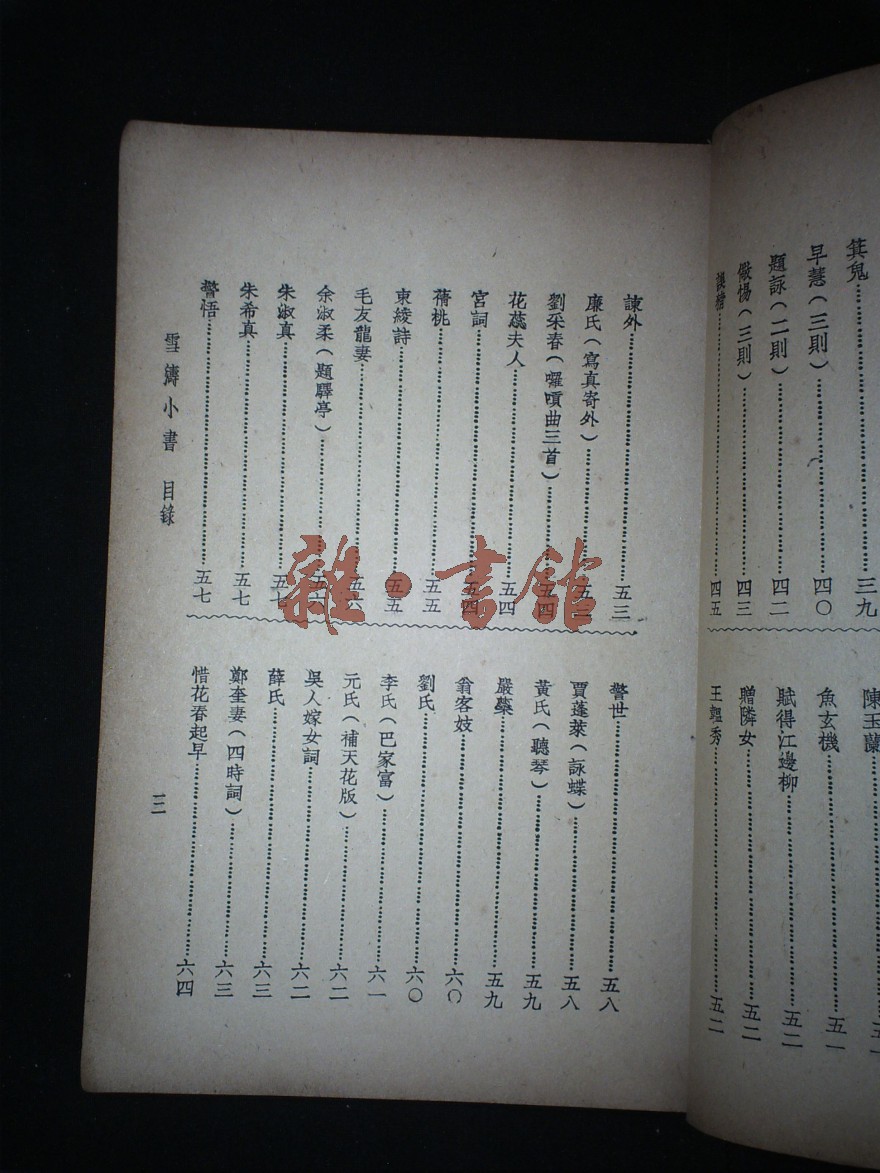 箕鬼……三九
早慧（三則）……四〇
題詠（二則）……四二
儆惕（三則）……四三
……四五
陳玉蘭……五一
魚玄機……五一
賦得江邊柳……五二
贈隣女……五二
王韞秀……五二
諫外……五三
廉氏（寫真寄外）……五三
劉采春（囉嗊曲三首）……五四
花蕊夫人……五四
宮詞……五四
蒨桃……五五
束綾詩……五五
毛友龍妻……五六
余淑柔（題驛亭）……五六
朱淑真……五七
朱希真……五七
警悟……五七
警世……五八
賈蓬萊（詠蝶）……五八
黃氏（聽琴）……五九
嚴蘂……五九
翁客妓……六〇
劉氏……六〇
李氏（巴家富）……六一
元氏（補天花版）……六二
吳人嫁女詞……六二
薛氏……六三
鄭奎妻（四時詞）……六三
惜花春起早……六四
雪濤小書 目錄
三
雜·書館